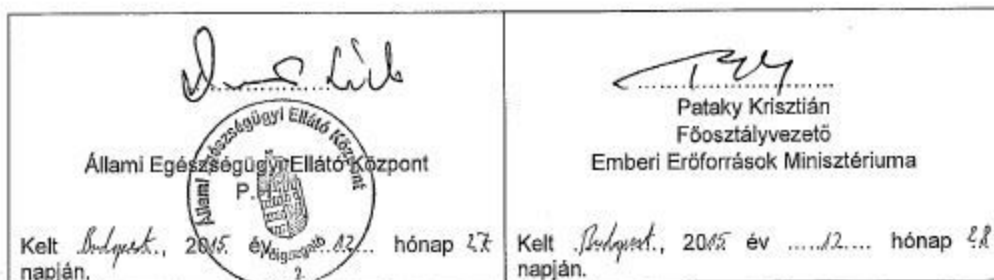 Állami Egészségügyi Ellátó Központ
Állami Egészségügyi Ellátó Központ
P.H.
2.
Kelt Budapest., 2015. év ...12... hónap 27.
napján.
Pataky Krisztián
Főosztályvezető
Emberi Erőforrások Minisztériuma
Kelt Budapest., 2015 év .....12.... hónap 28
napján.